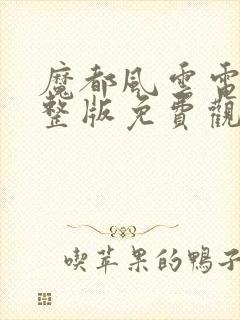 魔都風雲電
整版免費觀
喫苹果的鴨子